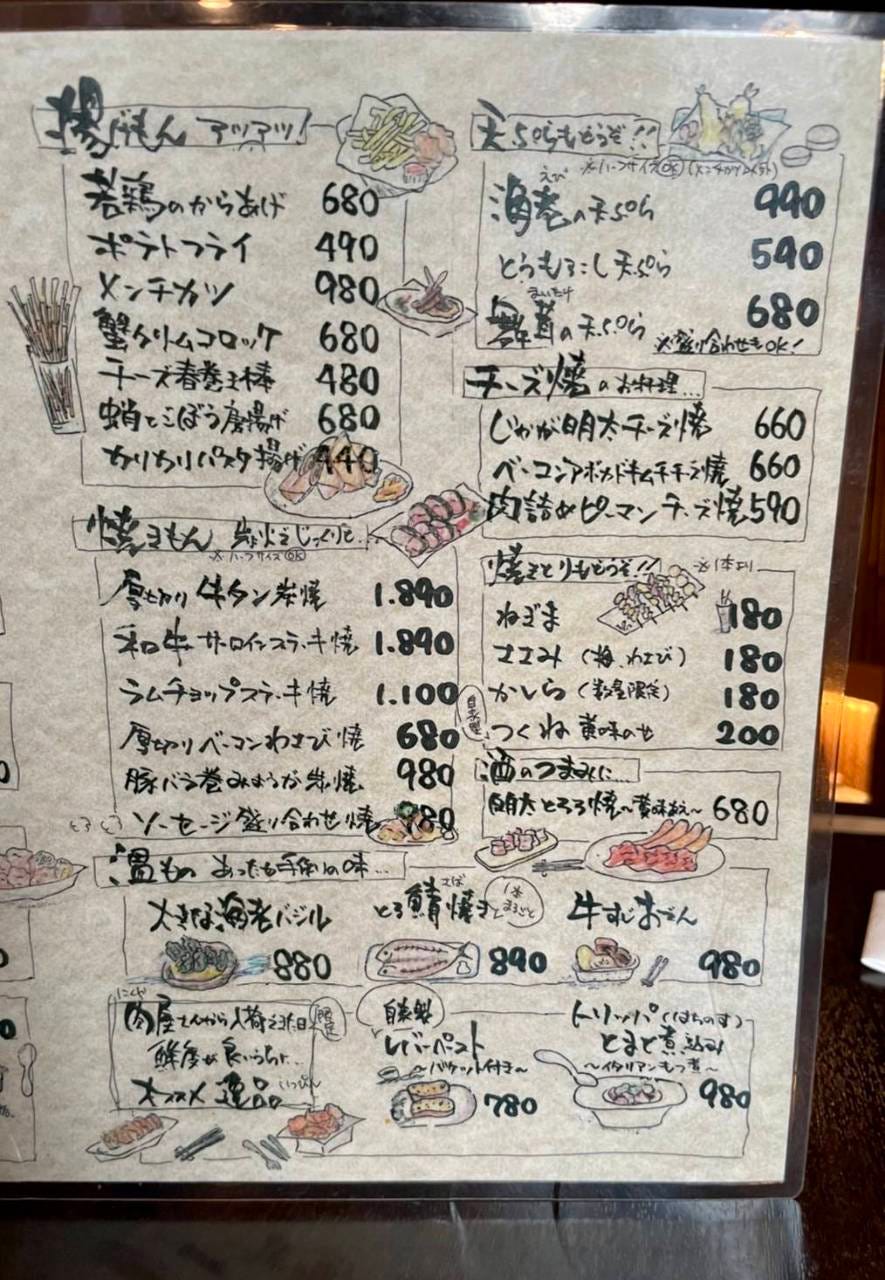 揚げもん アツアツ!
若鶏のからあげ 680
ポテトフライ 490
メンチカツ 980
蟹クリムコロッケ 680
チーズ春巻き棒 480
蛸とごぼう唐揚げ 680
かりかりパスタ揚げ 440
焼きもん 炭火でじっくりと...
※ハーフサイズOK
厚切り牛タン炭焼 1.890
和牛サーロインステーキ焼 1.890
ラムチョップステーキ焼 1.100
厚切りベーコンわさび焼 680
豚バラ巻みょうが炭焼 980
ソーセージ盛り合わせ焼 980
天ぷらもどうぞ!!
※ハーフサイズOK
えび
海老の天ぷら 990
とうもろこし天ぷら 590
まいたけ
舞茸の天ぷら 680
※盛り合わせもOK!
チーズ焼のお料理...
じゃが明太チーズ焼 660
ベーコンアボカドキムチチーズ焼 660
肉詰めピーマンチーズ焼 590
焼きとりもどうぞ!! ※1本より
ねぎま 180
ささみ(梅、わさび) 180
かしら(数量限定) 180
自家製
つくね 黄味のせ 200
酒のつまみに...
明太とろろ焼〜黄味あえ〜 680
温もの あったか手作りの味...
大きな海老バジル 880
さば
とろ鯖焼き 1本まるごと 890
牛すじおでん 980
にくや
肉屋さんから入荷した日 限定
鮮度が良いうちに...
オススメ 逸品
いっぴん
自家製
レバーペースト
〜バケット付き〜
780
トリッパ(はちのす)
とまと煮込み
〜イタリアンもつ煮〜
980